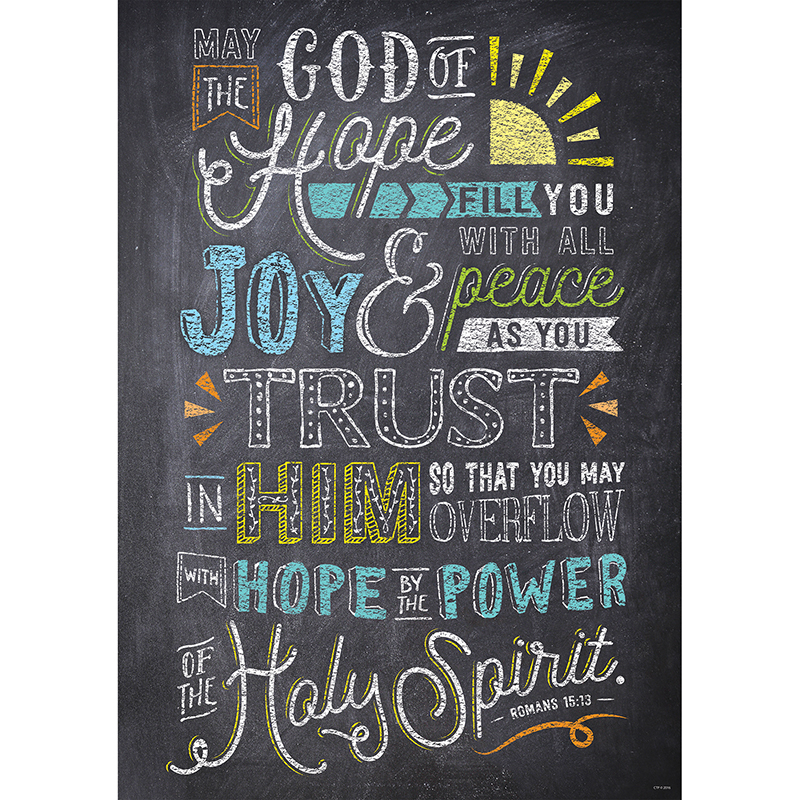 MAY THE GOD OF
Hope
FILL YOU
JOY & WITH ALL
peace
AS YOU
TRUST
IN HIM SO THAT YOU MAY
OVERFLOW
WITH HOPE BY THE POWER
OF THE Holy Spirit.
ROMANS 15:13